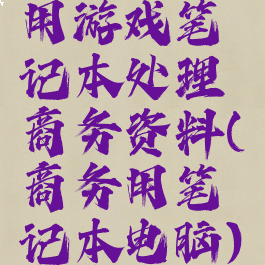 用游戏笔
记本处理
商务资料(
商务用笔
记本电脑)